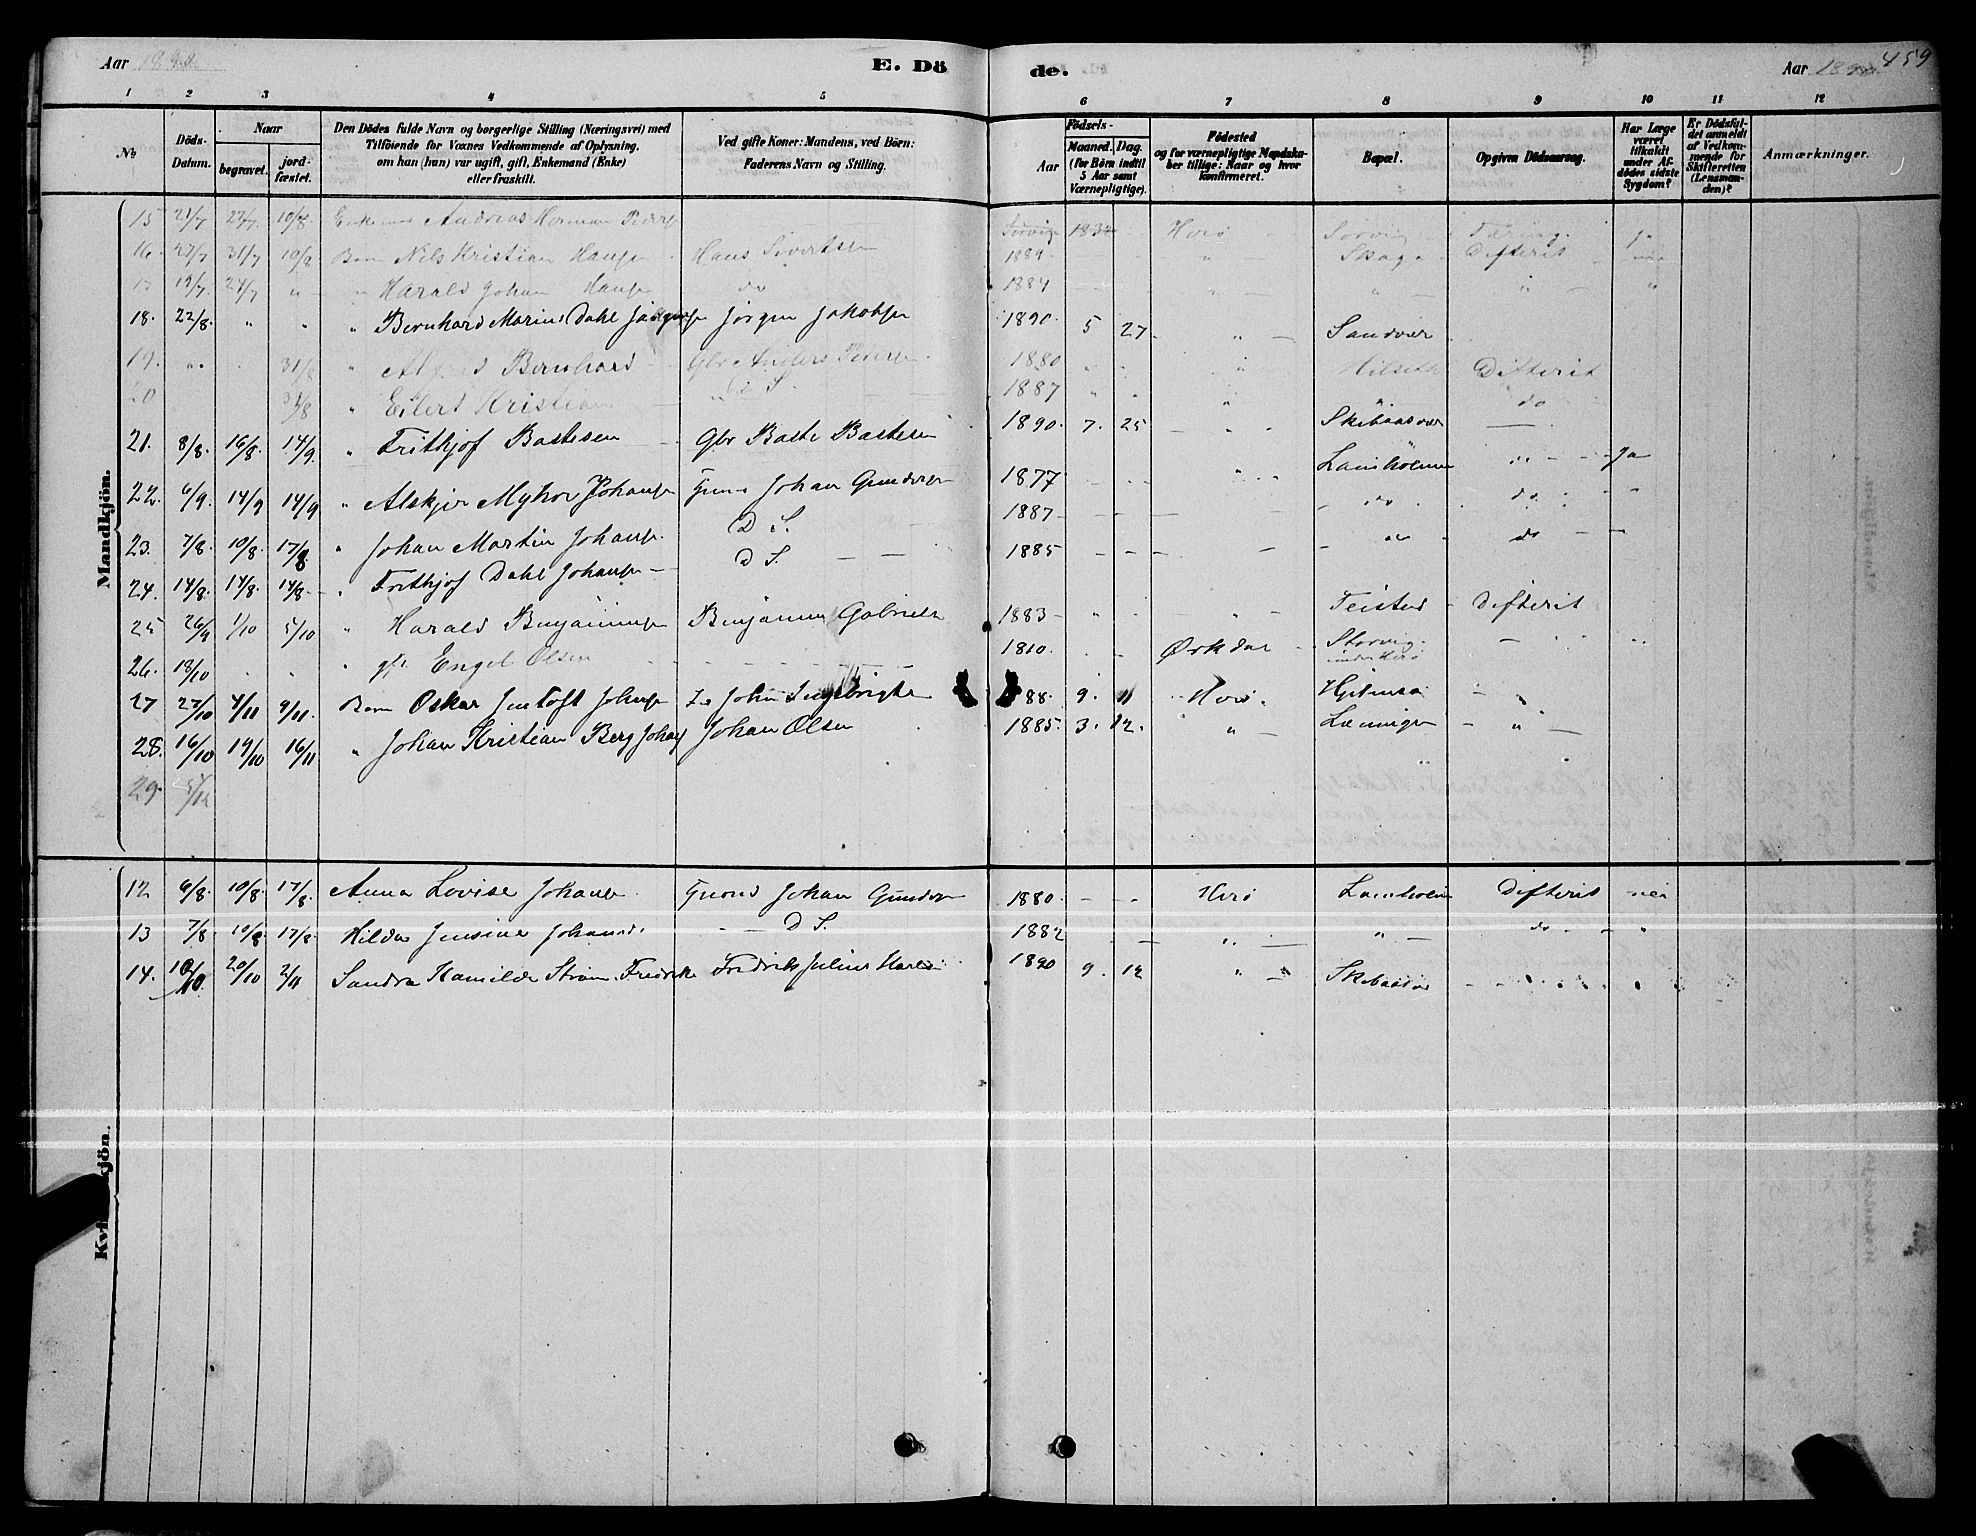 Aar 1890 E. Dö
de. Aar 1890 459
1 2 3 4 5 6 7 8 9 10 11 12
No
Döds-Datum.
Naar
begravet.
jord-fæstet.
Den Dödes fulde Navn og borgerlige Stilling (Næringsvei) med
Tilföiende for Voxnes Vedkommende af Oplysning,
om han (hun) var ugift, gift, Enkemand (Enke)
eller fraskilt.
Ved gifte Koner: Mandens, ved Börn:
Faderens Navn og Stilling.
Födsels-
Aar
Maaned. Dag.
(for Börn indtil
5 Aar samt
Værnepligtige).
Födested
og for værnepligtige Mandska-
ber tillige: Naar og hvor
konfirmeret.
Bopæl.
Opgiven Dödsaarsag.
Har Læge
været
tilkaldt
under Af-
dödes sidste
Sygdom?
Er Dödsfal-
det anmeldt
af Vedkom-
mende for
Skifteretten
(Lensman-
den)?
Anmærkninger.
Mandkjön.
15 21/7 27/7 10/8 Andreas Herman Peders 1834 Herø Sorvig Tæring. ja
16. 27/7 31/7 10/8 Barn Nils Kristian Hans Hans Sivertsen 1889 " Skaga Difterit nei
17 19/7 24/7 " " Harald Johan Hans do 1884 " " " "
18. 22/8. " " " Bernhard Marius Dahl Jørgens Jørgen Jakobsen 1890. 5 27. " Sandvær
19. " 31/8 " Bernhard Gbr Anders Peders 1880 " Hilseth Difterit
20 31/8 " Eilert Kristian D S. 1887 " " do
21. 8/8. 16/8. 14/9. " Frithjof Bastesen Gbr Baste Bastesen 1890. 7. 25 " Skibaasvær —
22. 6/9. 14/9 14/9 " Alskjer Myhre Johans Johan Gunders 1877 " Lamholmen " Ja
23. 7/8. 10/8. 17/8 " Johan Martin Johans. D S. 1887 — do do "
24. 14/8. 14/8. 14/8. " Frithjof Dahl Johans — D S. 1885 — do —
25 26/9 1/10 5/10 " Harald Benjamins Benjamin Gabriels 1883 " " Teistad Difterit
26. 18/10 " Engel Olsen 1810. Ørkdal Storvig under Herø
27 27/10 4/11 9/11. Barn Oskar Jentoft Johns John Ingebrigts 88 9. 11 Herø. Hjelmsø "
28. 16/10 19/10 16/11 " Johan Kristian Berg Johans Johan Olsen 1885. 3. 12. " Lænningen "
29. 5/12
Kvindekjön.
12 6/8. 10/8. 17/8. Anna Lovise Johans Johan Gunders 1880. Herø Lamholm Difterit nei
13 7/8. 10/8 17/8. Hilda Jensine Johans. D S. 1882 " " do "
14. 10/10. 20/10 2/11 Sandra Kamilde Strøm Fredrik Fredrik Julius Karls 1890 9. 12 " Skibaasvær